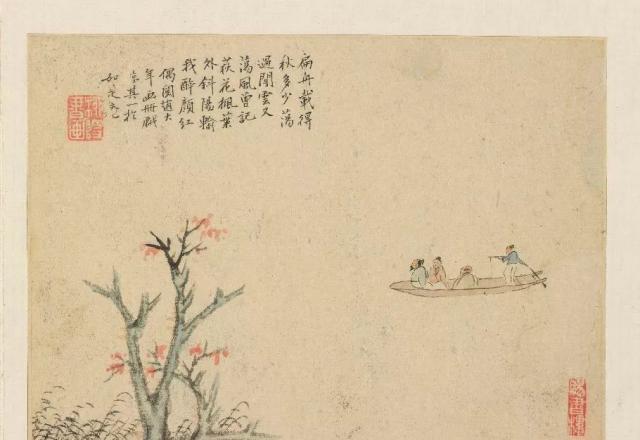 扁舟載得
秋多少蕩
過閒雲又
蕩風曾記
荻花楓葉
外斜陽輸
我醉顏紅
偶趙大
年畫冊戲
其一於
如是